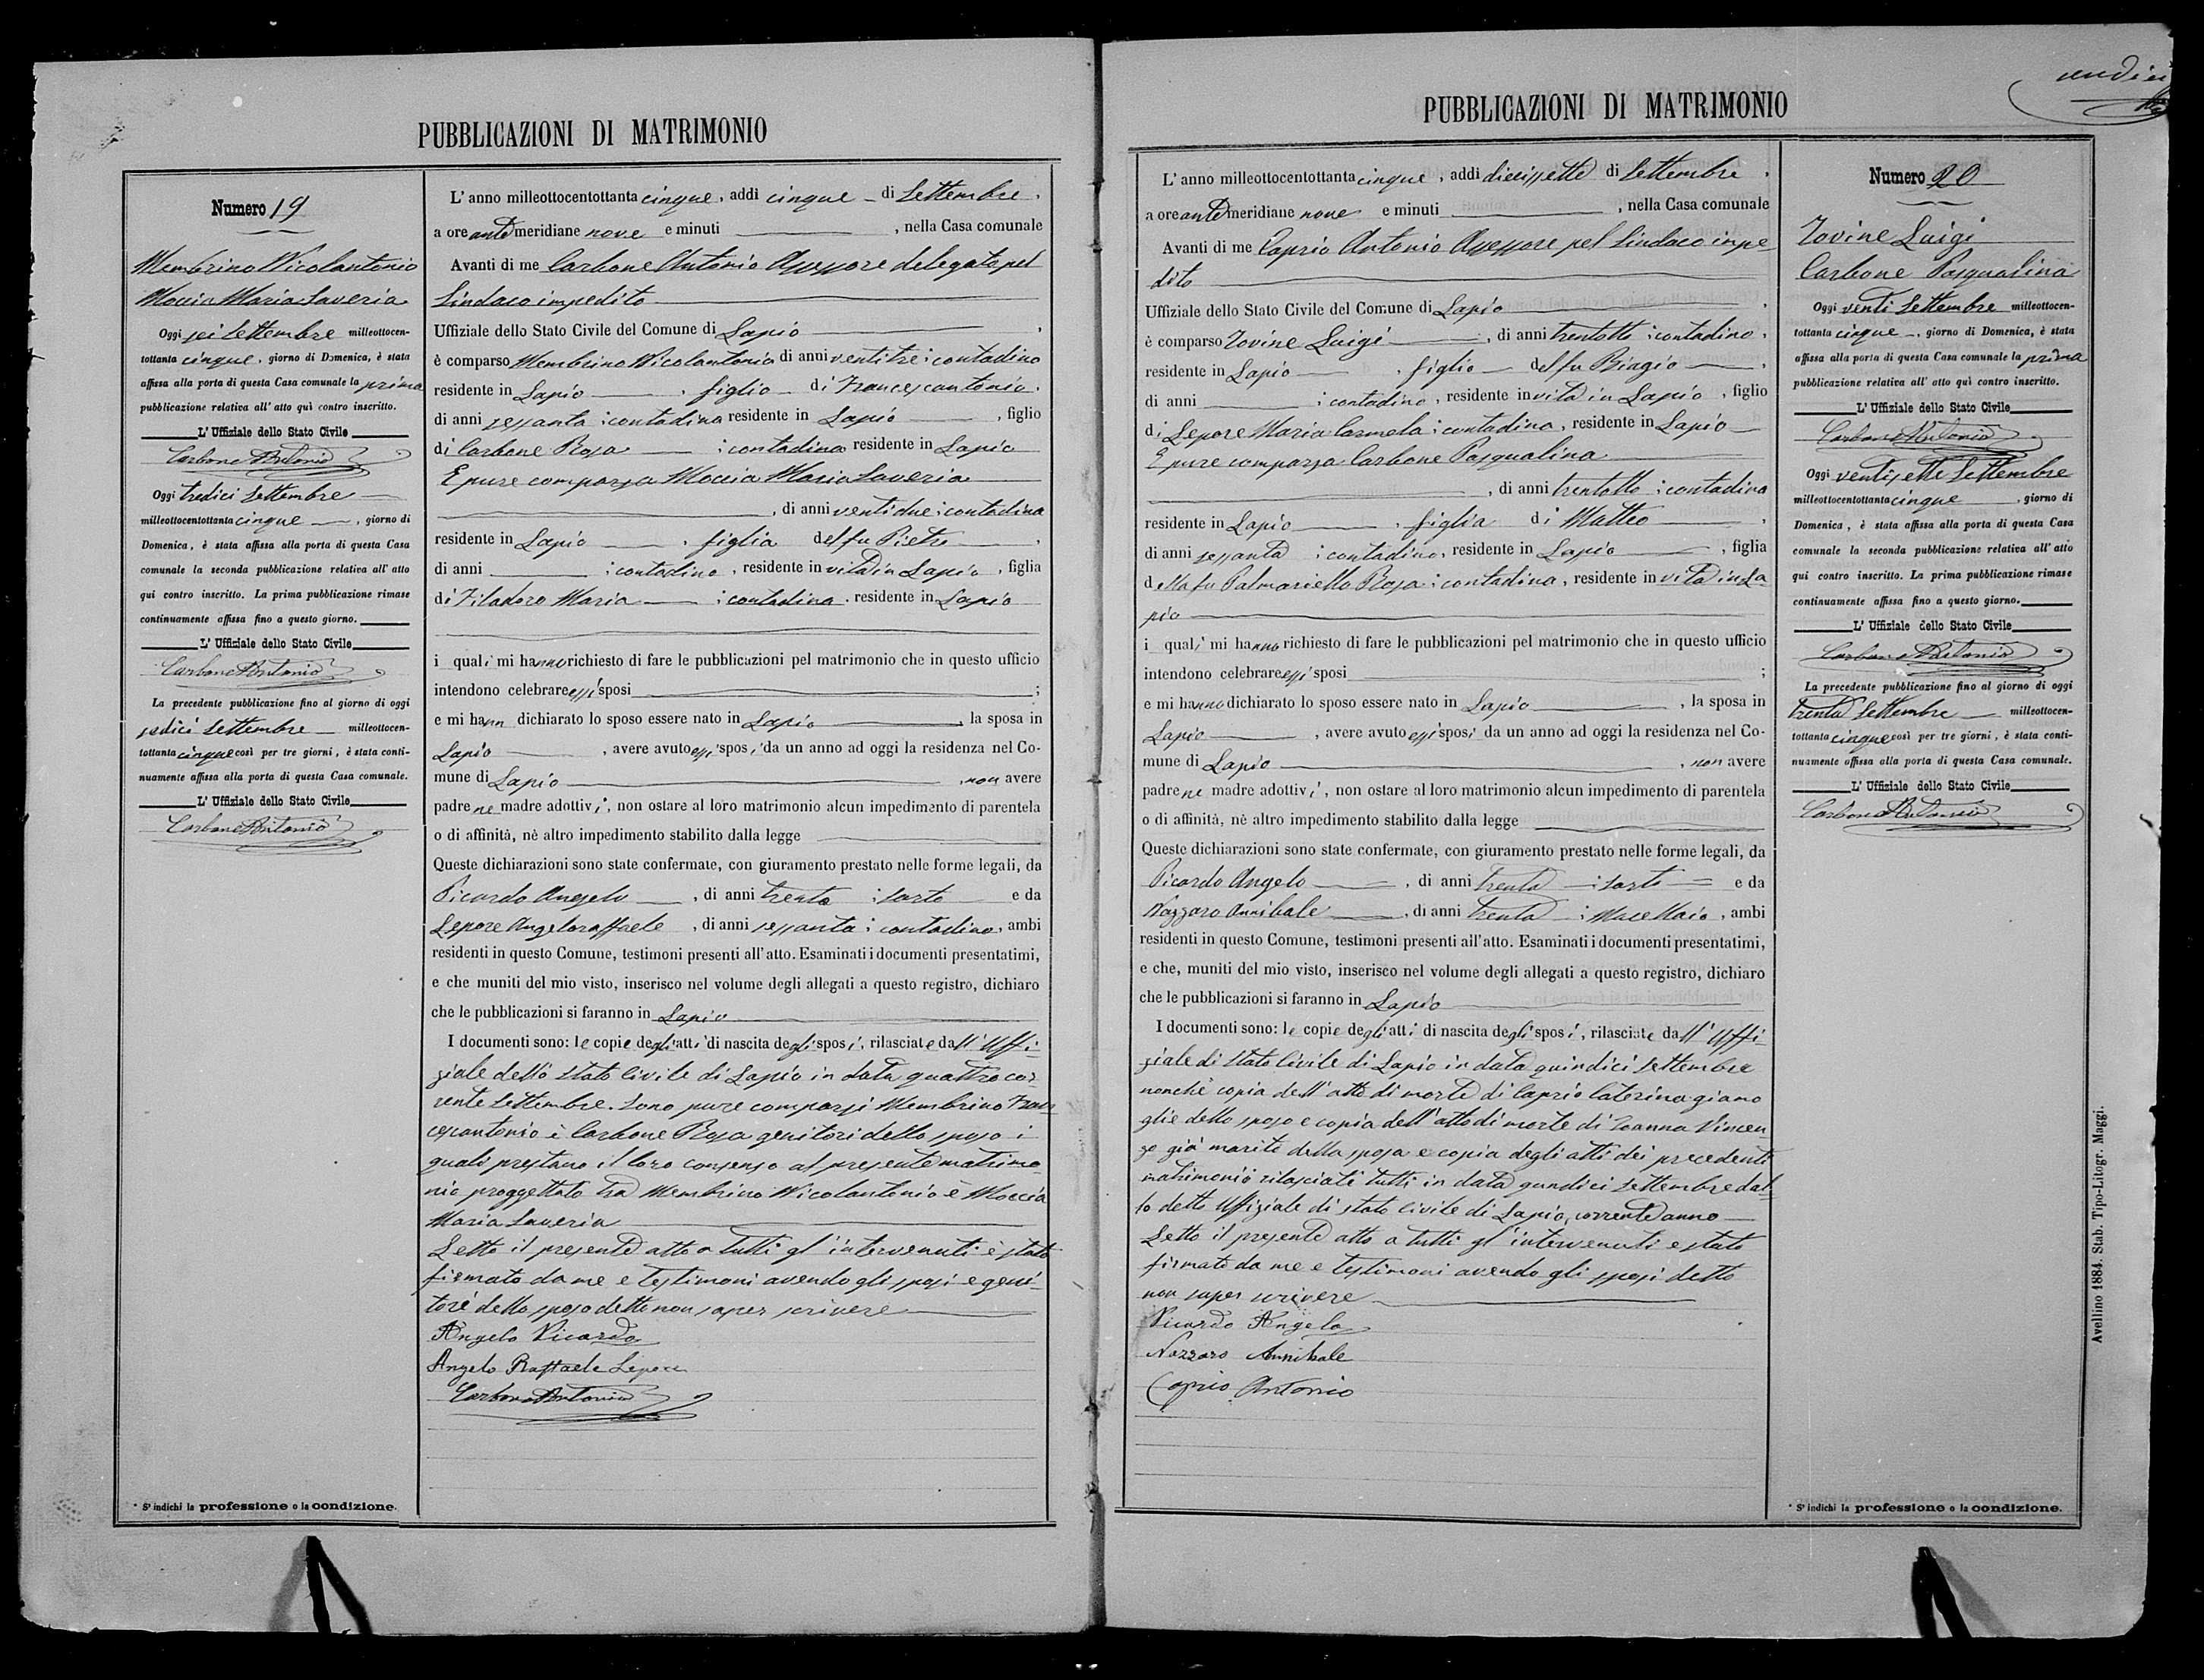 PUBBLICAZIONI DI MATRIMONIO
Numero 19
Membrino Nicolantonio
Moccia Maria Saveria
Oggi sei Settembre milleottocen-
tottanta cinque, giorno di Domenica, è stata
affissa alla porta di questa Casa comunale la prima
pubblicazione relativa all' atto quì contro inscritto.
L' Uffiziale dello Stato Civile
Carbone Antonio
Oggi tredici Settembre
milleottocentottanta cinque, giorno di
Domenica, è stata affissa alla porta di questa Casa
comunale la seconda pubblicazione relativa all' atto
qui contro inscritto. La prima pubblicazione rimase
continuamente affissa fino a questo giorno.
L' Uffiziale dello Stato Civile
Carbone Antonio
La precedente pubblicazione fino al giorno di oggi
sedici Settembre milleottocen-
tottanta cinque così per tre giorni, è stata conti-
nuamente affissa alla porta di questa Casa comunale.
L' Uffiziale dello Stato Civile
Carbone Antonio
* S' indichi la professione o la condizione.
L' anno milleottocentottanta cinque, addì cinque di Settembre,
a ore antemeridiane nove e minuti , nella Casa comunale
Avanti di me Carbone Antonio Assessore delegato pel
Sindaco impedito
Uffiziale dello Stato Civile del Comune di Lapio ,
è comparso Membrino Nicolantonio di anni ventitre : contadino
residente in Lapio , figlio di Francescantonio ,
di anni sessanta : contadino residente in Lapio , figlio
di Carbone Rosa : contadina residente in Lapio
E pure comparsa Moccia Maria Saveria
, di anni ventidue : contadina
residente in Lapio , figlia del fu Pietro ,
di anni : contadino, residente in vita in Lapio, figlia
di Filadoro Maria : contadina, residente in Lapio
i quali mi hanno richiesto di fare le pubblicazioni pel matrimonio che in questo ufficio
intendono celebrare essi sposi ;
e mi hann dichiarato lo sposo essere nato in Lapio , la sposa in
Lapio , avere avuto essi sposi da un anno ad oggi la residenza nel Co-
mune di Lapio , non avere
padre ne madre adottivi, non ostare al loro matrimonio alcun impedimento di parentela
o di affinità, nè altro impedimento stabilito dalla legge
Queste dichiarazioni sono state confermate, con giuramento prestato nelle forme legali, da
Picardo Angelo , di anni trenta : sarto e da
Lepore Angeloraffaele , di anni sessanta : contadino, ambi
residenti in questo Comune, testimoni presenti all' atto. Esaminati i documenti presentatimi,
e che muniti del mio visto, inserisco nel volume degli allegati a questo registro, dichiaro
che le pubblicazioni si faranno in Lapio
I documenti sono: le copie degli atti di nascita degli sposi, rilasciate dall' Uffi-
ziale dello Stato Civile di Lapio in data quattro cor-
rente Settembre. Sono pure comparsi Membrino Fran
cescantonio è Carbone Rosa genitori dello sposo i
quali prestano il loro consenso al presente matrimo
nio proggettato tra Membrino Nicolantonio è Moccia
Maria Saveria
Letto il presente atto a tutti gl' intervenuti è stato
firmato da me e testimoni avendo gli sposi e geni-
tori dello sposo detto non saper scrivere
Angelo Picardo
Angelo Raffaele Lepore
Carbone Antonio
PUBBLICAZIONI DI MATRIMONIO
L' anno milleottocentottanta cinque, addì diecissette di Settembre,
a ore antemeridiane nove e minuti , nella Casa comunale
Avanti di me Caprio Antonio Assessore pel Sindaco impe
dito
Uffiziale dello Stato Civile del Comune di Lapio ,
è comparso Iovine Luigi , di anni trentotto : contadino,
residente in Lapio , figlio del fu Biagio ,
di anni : contadino, residente in vita in Lapio, figlio
di Lepore Maria Carmela : contadina, residente in Lapio
E pure comparsa Carbone Pasqualina
, di anni trentotto : contadina
residente in Lapio , figlia di Matteo ,
di anni sessanta : contadino, residente in Lapio , figlia
della fu Palmariello Rosa : contadina, residente in vita in La
pio
i quali mi hanno richiesto di fare le pubblicazioni pel matrimonio che in questo ufficio
intendono celebrare essi sposi ;
e mi hanno dichiarato lo sposo essere nato in Lapio , la sposa in
Lapio , avere avuto essi sposi da un anno ad oggi la residenza nel Co-
mune di Lapio , non avere
padre ne madre adottivi, non ostare al loro matrimonio alcun impedimento di parentela
o di affinità, nè altro impedimento stabilito dalla legge
Queste dichiarazioni sono state confermate, con giuramento prestato nelle forme legali, da
Picardo Angelo , di anni trenta : sarto e da
Nazzaro Annibale , di anni trenta : Macellaio, ambi
residenti in questo Comune, testimoni presenti all' atto. Esaminati i documenti presentatimi,
e che, muniti del mio visto, inserisco nel volume degli allegati a questo registro, dichiaro
che le pubblicazioni si faranno in Lapio
I documenti sono: le copie degli atti di nascita degli sposi, rilasciate dall' Uffi-
ziale di Stato Civile di Lapio in data quindici Settembre
nonchè copia dell' atto di morte di Caprio Caterina già mo
glie dello sposo e copia dell' atto di morte di Ioanna Vincen-
zo già marito della sposa e copia degli atti dei precedenti
matrimonii rilasciati tutti in data quindici Settembre dal-
lo detto Uffiziale di stato Civile di Lapio, corrente anno
Letto il presente atto a tutti gl' intervenuti e stato
firmato da me e testimoni avendo gli sposi detto
non saper scrivere
Picardo Angelo
Nazzaro Annibale
Caprio Antonio
Numero 20
Iovine Luigi
Carbone Pasqualina
Oggi venti Settembre milleottocen-
tottanta cinque, giorno di Domenica, è stata
affissa alla porta di questa Casa comunale la prima
pubblicazione relativa all' atto quì contro inscritto.
L' Uffiziale dello Stato Civile
Carbone Antonio
Oggi ventisette Settembre
milleottocentottanta cinque , giorno di
Domenica, è stata affissa alla porta di questa Casa
comunale la seconda pubblicazione relativa all' atto
qui contro inscritto. La prima pubblicazione rimase
continuamente affissa fino a questo giorno.
L' Uffiziale dello Stato Civile
Carbone Antonio
La precedente pubblicazione fino al giorno di oggi
trenta Settembre milleottocen-
tottanta cinque così per tre giorni, è stata conti-
nuamente affissa alla porta di questa Casa comunale.
L' Uffiziale dello Stato Civile
Carbone Antonio
* S' indichi la professione o la condizione.
Avellino 1884. Stab. Tipo-Litogr. Maggi.